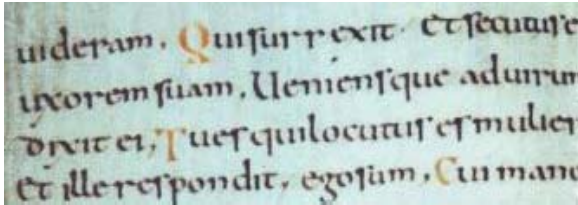 uideram. Qui surrexit. et secutus e
uxorem suam. Ueniensque ad uirum
dixit ei, Tu es qui locutus es mulier
et ille respondit, ego sum. Cui mano